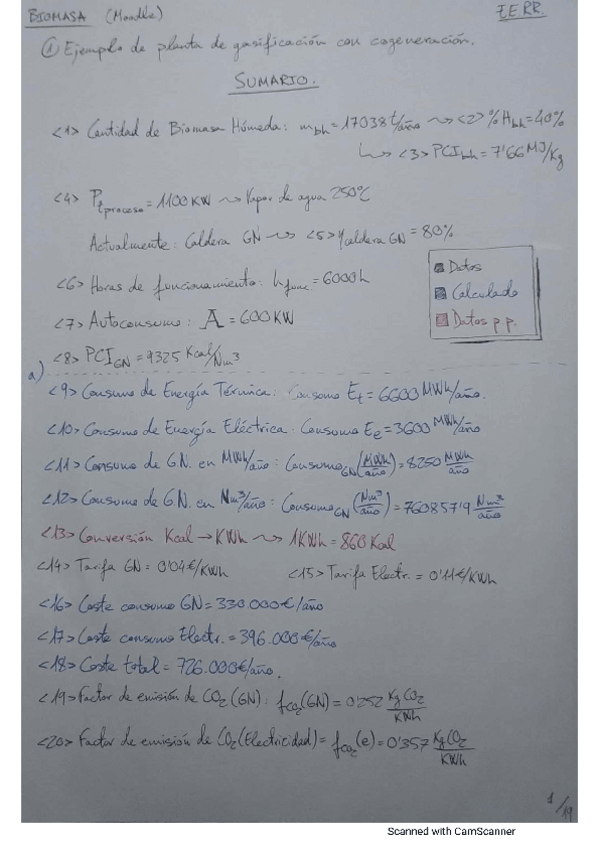 BIOMASA (Moodle) EERR.
① Ejemplo de planta de gasificación con cogeneración.
SUMARIO.
<1> Cantidad de Biomasa Húmeda: mbh = 17038 t/año ⤳ <2> %Hbh = 40%
↳ <3> PCIbh = 7'66 MJ/Kg
<4> Ptproceso = 1100 KW ⤳ Vapor de agua 250ºC
Actualmente: Caldera GN ⤳ <5> ηcaldera GN = 80%
<6> Horas de funcionamiento: hfunc = 6000h
Datos
Calculado
Datos p.p.
<7> Autoconsumo: A = 600 KW
<8> PCIGN = 9325 Kcal/Nm³
a)
<9> Consumo de Energía Térmica: Consumo Et = 6600 MWh/año.
<10> Consumo de Energía Eléctrica: Consumo Ee = 3600 MWh/año
<11> Consumo de GN. en MWh/año: ConsumoGN (MWh/año) = 8250 MWh/año
<12> Consumo de GN. en Nm³/año: ConsumoGN (Nm³/año) = 760857'9 Nm³/año
<13> Conversión Kcal → KWh ⤳ 1KWh = 860 Kcal
<14> Tarifa GN = 0'04 €/KWh <15> Tarifa Electr. = 0'11 €/KWh
<16> Coste consumo GN = 330.000 €/año
<17> Coste consumo Electr. = 396.000 €/año
<18> Coste total = 726.000 €/año.
<19> Factor de emisión de CO₂ (GN): fCO₂(GN) = 0'252 Kg CO₂/KWh
<20> Factor de emisión de CO₂ (Electricidad) = fCO₂(e) = 0'357 Kg CO₂/KWh
1/19
Scanned with CamScanner